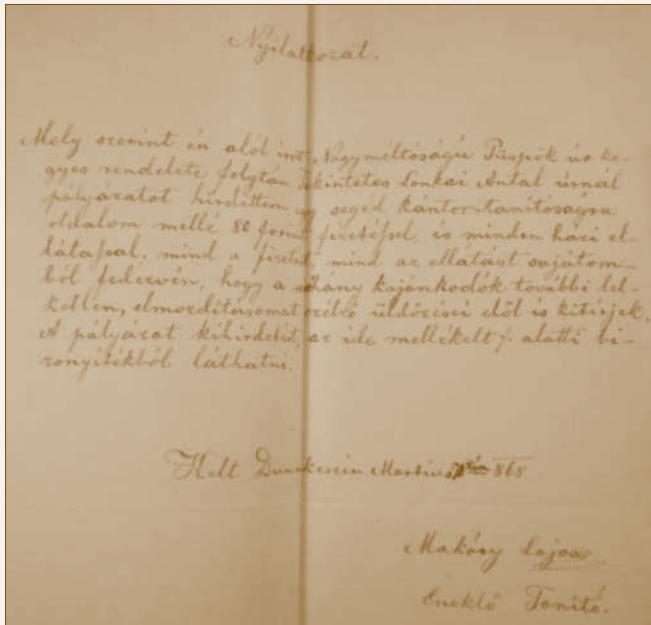 Nyilatkozat.
Mely szerint én alól irt Nagyméltóságú Püspök úr ke-
gyes rendelete folytán Tekintetes Lonkai Antal úrnál
pályázatot hirdettem egy segéd kántor-tanitóságra
oldalom mellé 80 forint fizetéssel, és minden házi el-
látással, mind a fizetést mind az ellátást sajátom-
ból fedezvén, hogy a néhány kajánkodók további lel-
ketlen, elmozditásomat czélzó üldözései elől is kitérjek.
A pályázat kihirdetését az ide mellékelt ·/· alatti bi-
zonyitékból láthatni.
Kelt Martius 868
Makáry Lajos
Éneklő Tanitó.